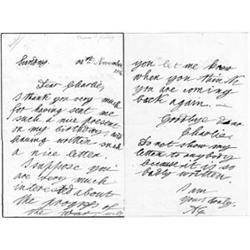 Sunday. 24th November
Dear Charlie,
I thank you very much
for having sent me
such a nice present
on my birthday, and
having written such
a nice letter.
Suppose you
are very much
interested about
the progress of
the
you let me know
when you think
you are coming
back again. —
Goodbye Dear
Charlie.
Do not show my
letter to anybody
because it is so
badly written.
I am
yours truly,